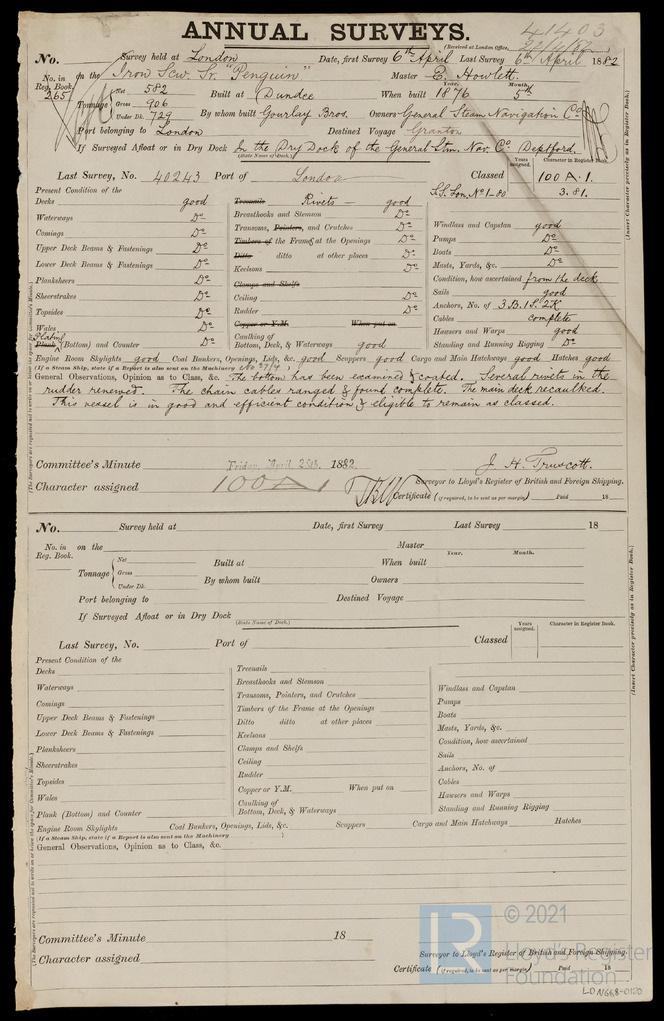 ANNUAL SURVEYS.
41403
(Received at London Office,
No. Survey held at London Date, first Survey 6th April Last Survey 6th April 1882
No. in Reg. Book. 265 on the Iron Scw. Sr. "Penguin" Master E. Howlett.
Tonnage Net 582 Gross 906 Under Dk. 729
Built at Dundee When built 1876 Year. Month. 5th
By whom built Gourlay Bros. Owners General Steam Navigation Co.
Port belonging to London Destined Voyage Granton
If Surveyed Afloat or in Dry Dock In the Dry Dock of the General Stm. Nav. Co. Deptford.
(State Name of Dock.)
Years assigned. Character in Register Book.
Last Survey, No. 40243 Port of London Classed 100 A.1.
S.S. Lon. No 1-80 3.81.
(Insert Character precisely as in Register Book.)
Present Condition of the
Decks good
Waterways Do
Comings Do
Upper Deck Beams & Fastenings Do
Lower Deck Beams & Fastenings Do
Planksheers Do
Sheerstrakes Do
Topsides Do
Wales Do
Plating
Plank (Bottom) and Counter Do
Treenails Rivets good
Breasthooks and Stemson Do
Transoms, Pointers, and Crutches Do
Timbers of the Frame at the Openings Do
Ditto ditto at other places Do
Keelsons Do
Clamps and Shelfs
Ceiling Do
Rudder Do
Copper or Y.M. When put on
Caulking of Bottom, Deck, & Waterways good
Windlass and Capstan good
Pumps Do
Boats Do
Masts, Yards, &c. Do
Condition, how ascertained from the deck
Sails good
Anchors, No. of 3 B. 1 S. 2 K
Cables complete
Hawsers and Warps good
Standing and Running Rigging Do
Engine Room Skylights good Coal Bunkers, Openings, Lids, &c. good Scuppers good Cargo and Main Hatchways good Hatches good
(If a Steam Ship, state if a Report is also sent on the Machinery )
General Observations, Opinion as to Class, &c. The bottom has been examined & coated. Several rivets in the
rudder renewed. The chain cables ranged & found complete. The main deck recaulked.
This vessel is in good and efficient condition & eligible to remain as classed.
Committee's Minute Friday, April 25th, 1882.
J. H. Truscott.
Character assigned 100 A 1
Surveyor to Lloyd's Register of British and Foreign Shipping.
Certificate (if required, to be sent as per margin) Paid 18
(The Surveyors are requested not to write on or below the space for Committee's Minute.)
No. Survey held at Date, first Survey Last Survey 18
No. in Reg. Book. on the Master
Tonnage Net Gross Under Dk.
Built at When built Year. Month.
By whom built Owners
Port belonging to Destined Voyage
If Surveyed Afloat or in Dry Dock
(State Name of Dock.)
Years assigned. Character in Register Book.
Last Survey, No. Port of Classed
(Insert Character precisely as in Register Book.)
Present Condition of the
Decks
Waterways
Comings
Upper Deck Beams & Fastenings
Lower Deck Beams & Fastenings
Planksheers
Sheerstrakes
Topsides
Wales
Plank (Bottom) and Counter
Treenails
Breasthooks and Stemson
Transoms, Pointers, and Crutches
Timbers of the Frame at the Openings
Ditto ditto at other places
Keelsons
Clamps and Shelfs
Ceiling
Rudder
Copper or Y.M. When put on
Caulking of Bottom, Deck, & Waterways
Windlass and Capstan
Pumps
Boats
Masts, Yards, &c.
Condition, how ascertained
Sails
Anchors, No. of
Cables
Hawsers and Warps
Standing and Running Rigging
Engine Room Skylights Coal Bunkers, Openings, Lids, &c. Scuppers Cargo and Main Hatchways Hatches
(If a Steam Ship, state if a Report is also sent on the Machinery )
General Observations, Opinion as to Class, &c.
Committee's Minute 18
Character assigned
Surveyor to Lloyd's Register of British and Foreign Shipping.
Certificate (if required, to be sent as per margin) Paid 18
(The Surveyors are requested not to write on or below the space for Committee's Minute.)
LR © 2021
Lloyd's Register
Foundation
LDN668-0120